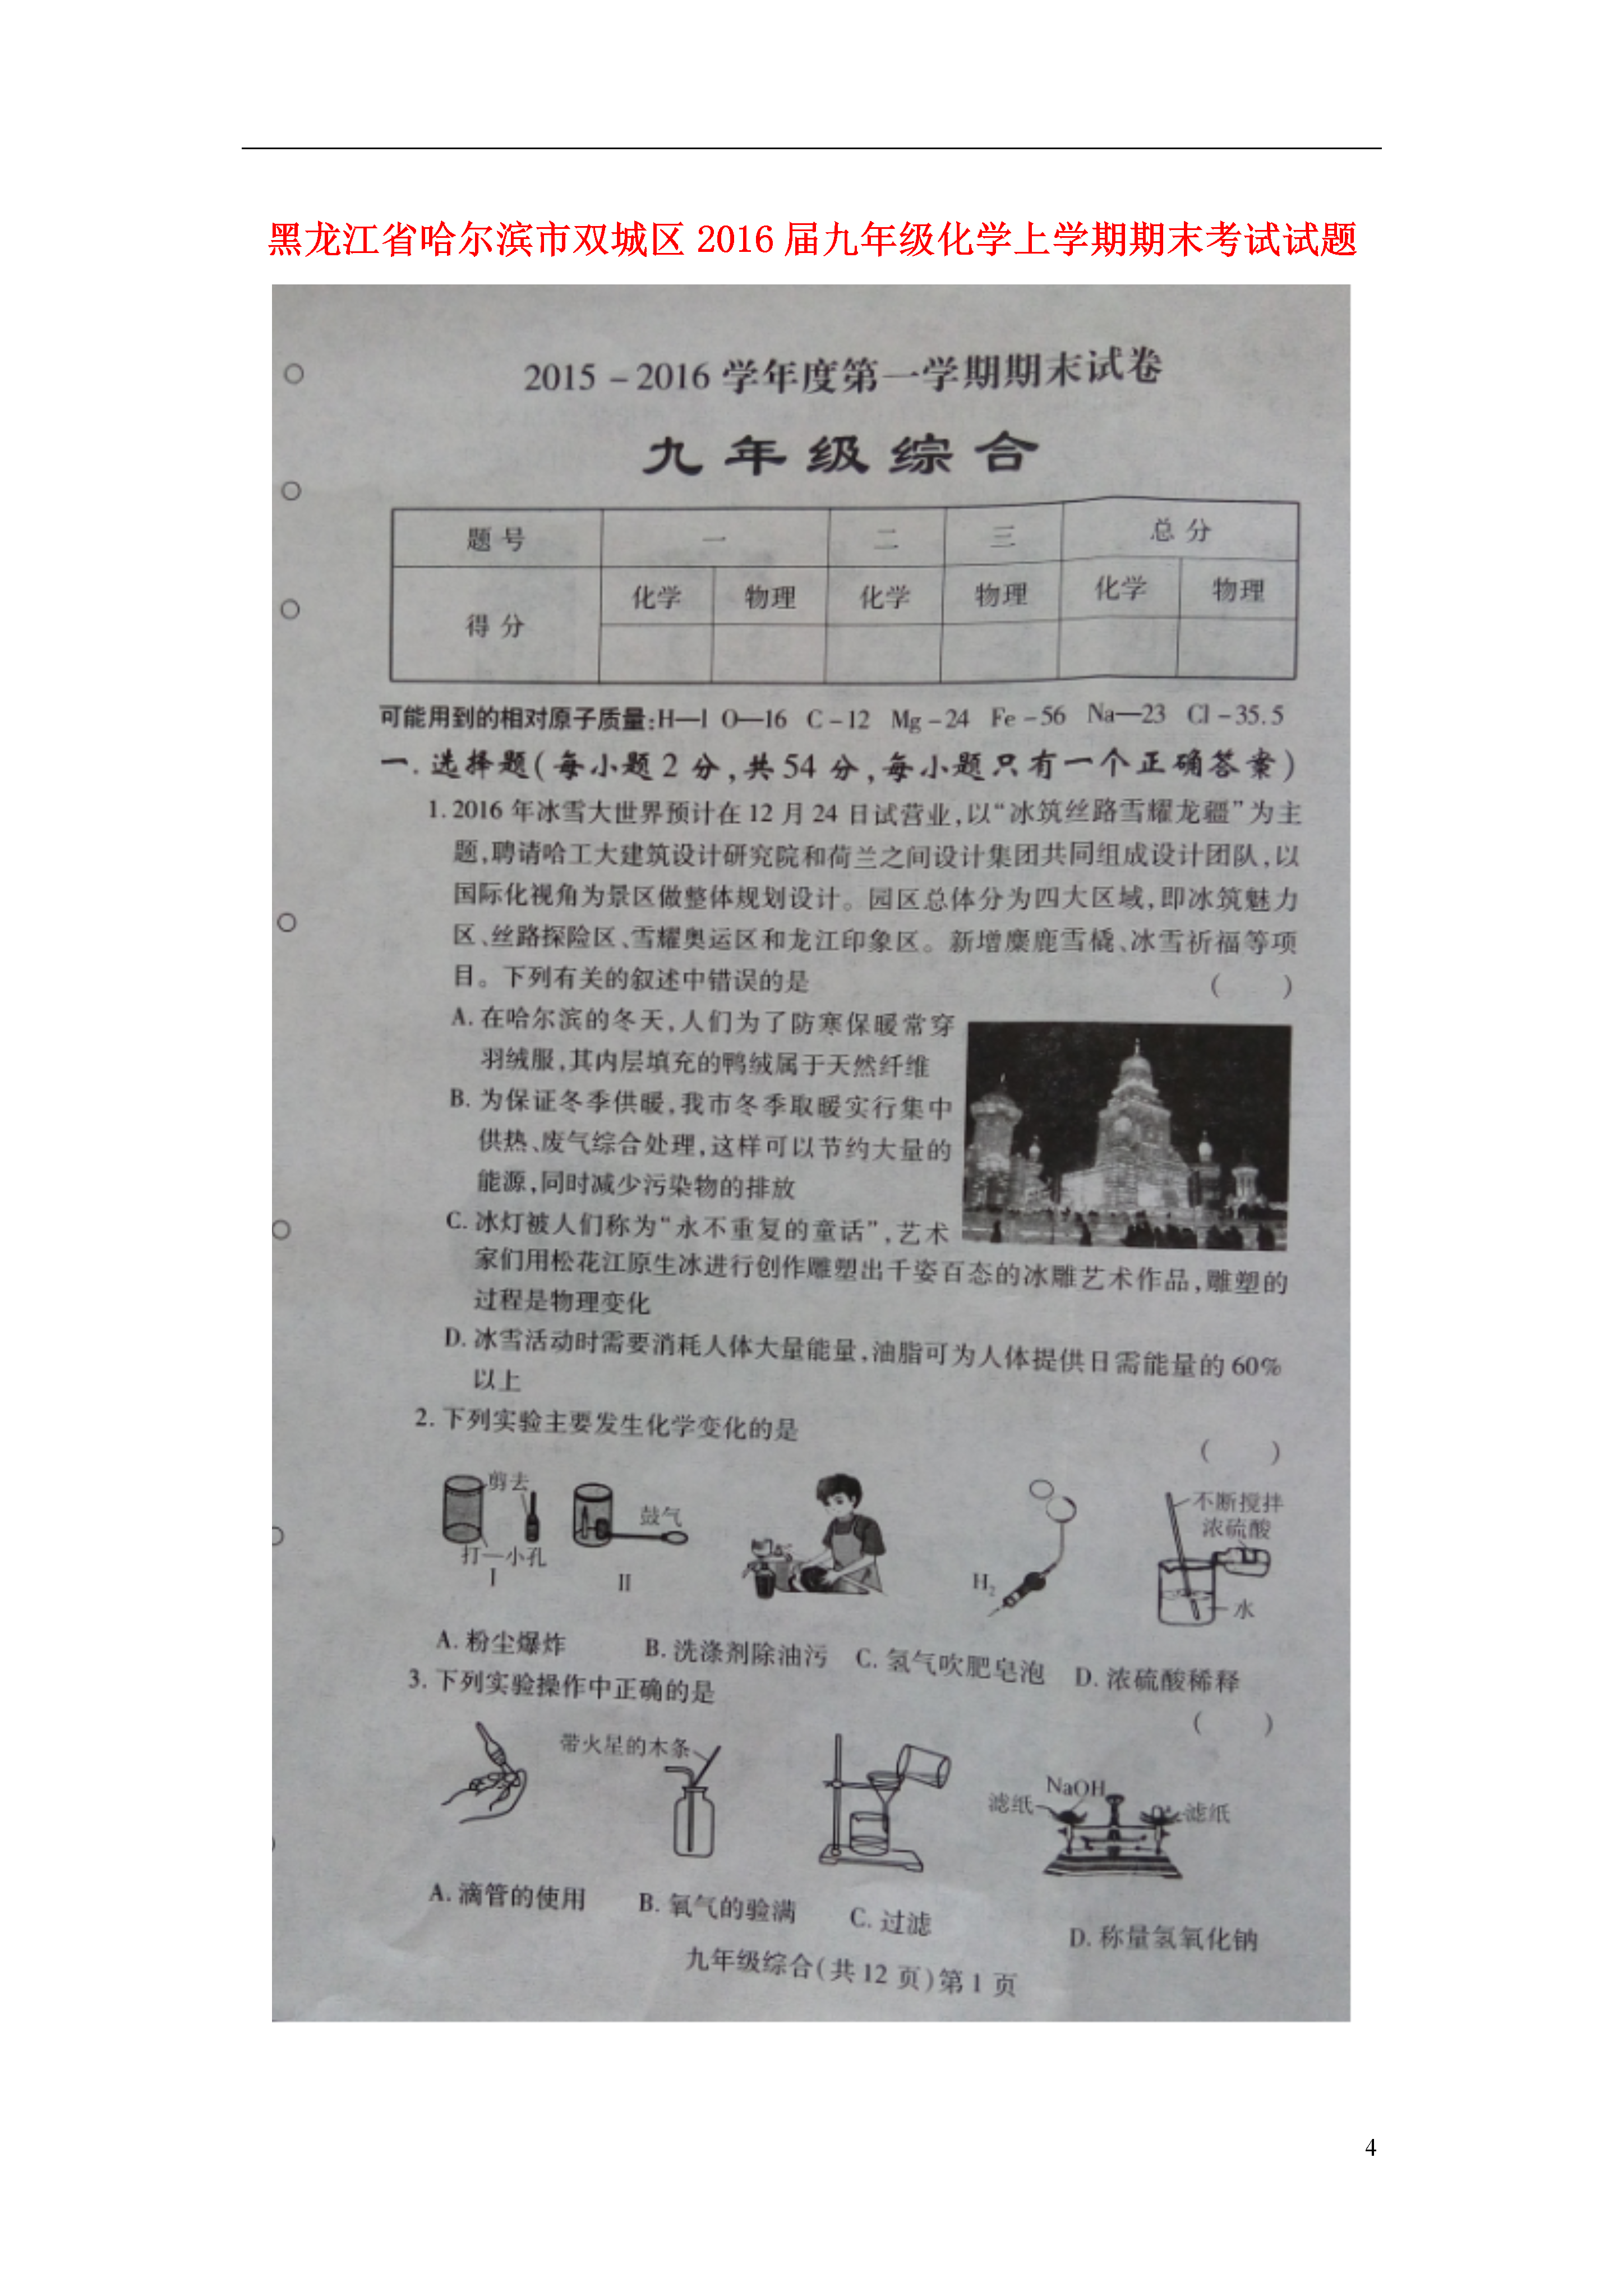 黑龙江省哈尔滨市双城区 2016 届九年级化学上学期期末考试试题
2015－2016 学年度第一学期期末试卷
九年级综合
题号 一 二 三 总分
得分 化学 物理 化学 物理 化学 物理
可能用到的相对原子质量:H—1 O—16 C－12 Mg－24 Fe－56 Na—23 Cl－35.5
一.选择题(每小题2分,共54分,每小题只有一个正确答案)
1.2016年冰雪大世界预计在12月24日试营业,以“冰筑丝路雪耀龙疆”为主
题,聘请哈工大建筑设计研究院和荷兰之间设计集团共同组成设计团队,以
国际化视角为景区做整体规划设计。园区总体分为四大区域,即冰筑魅力
区、丝路探险区、雪耀奥运区和龙江印象区。新增麋鹿雪橇、冰雪祈福等项
目。下列有关的叙述中错误的是 ( )
A.在哈尔滨的冬天,人们为了防寒保暖常穿
羽绒服,其内层填充的鸭绒属于天然纤维
B.为保证冬季供暖,我市冬季取暖实行集中
供热、废气综合处理,这样可以节约大量的
能源,同时减少污染物的排放
C.冰灯被人们称为“永不重复的童话”,艺术
家们用松花江原生冰进行创作雕塑出千姿百态的冰雕艺术作品,雕塑的
过程是物理变化
D.冰雪活动时需要消耗人体大量能量,油脂可为人体提供日需能量的60%
以上
2.下列实验主要发生化学变化的是 ( )
剪去
打一小孔
I
鼓气
II
H₂
不断搅拌
浓硫酸
水
A.粉尘爆炸 B.洗涤剂除油污 C.氢气吹肥皂泡 D.浓硫酸稀释
3.下列实验操作中正确的是 ( )
带火星的木条
NaOH
滤纸
滤纸
A.滴管的使用 B.氧气的验满 C.过滤 D.称量氢氧化钠
九年级综合(共12页)第1页
4